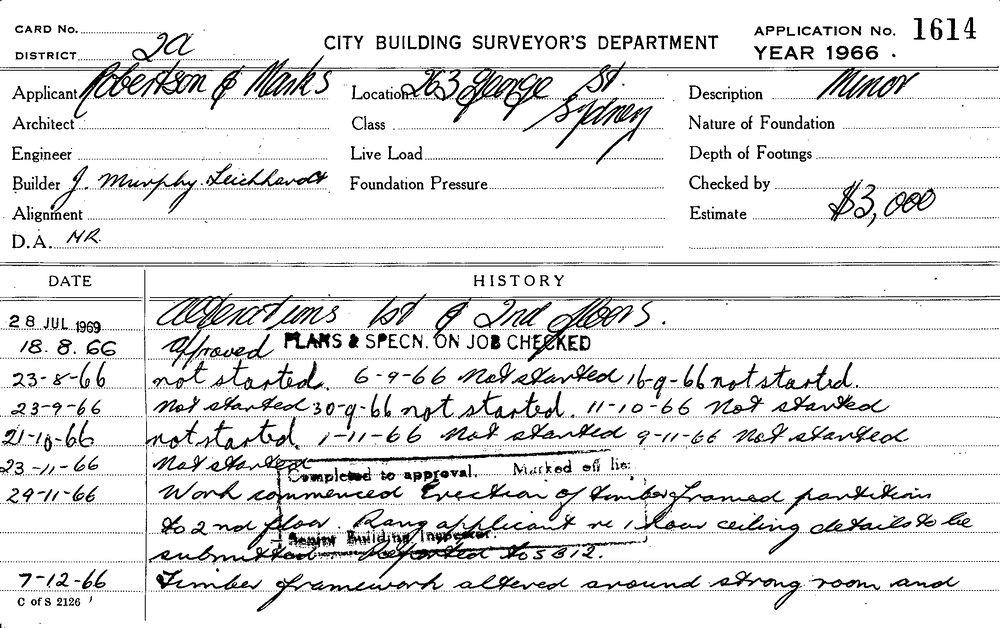 CARD No.
DISTRICT 2a
CITY BUILDING SURVEYOR'S DEPARTMENT
APPLICATION No. 1614
YEAR 1966.
Applicant Robertson & Marks
Location 263 George St. Sydney
Description Minor
Architect
Class
Nature of Foundation
Engineer
Live Load
Depth of Footings
Builder J. Murphy. Leichhardt
Foundation Pressure
Checked by
Alignment
Estimate $3,000
D.A. NR.
DATE HISTORY
28 JUL 1969 Alterations 1st & 2nd floors.
18.8.66 Approved PLANS & SPECN. ON JOB CHECKED
23-8-66 not started. 6-9-66 Not started 16-9-66 not started.
23-9-66 Not started 30-9-66 not started. 11-10-66 Not started
21-10-66 not started. 1-11-66 Not started 9-11-66 Not started
23-11-66 Not started
Completed to approval. Marked off
29-11-66 Work commenced Erection of timber framed partitions
to 2nd floor. Rang applicant re 1 hour ceiling details to be
Senior Building Inspector.
submitted. Reported to SB12.
7-12-66 Timber framework altered around strong room and
C of S 2126